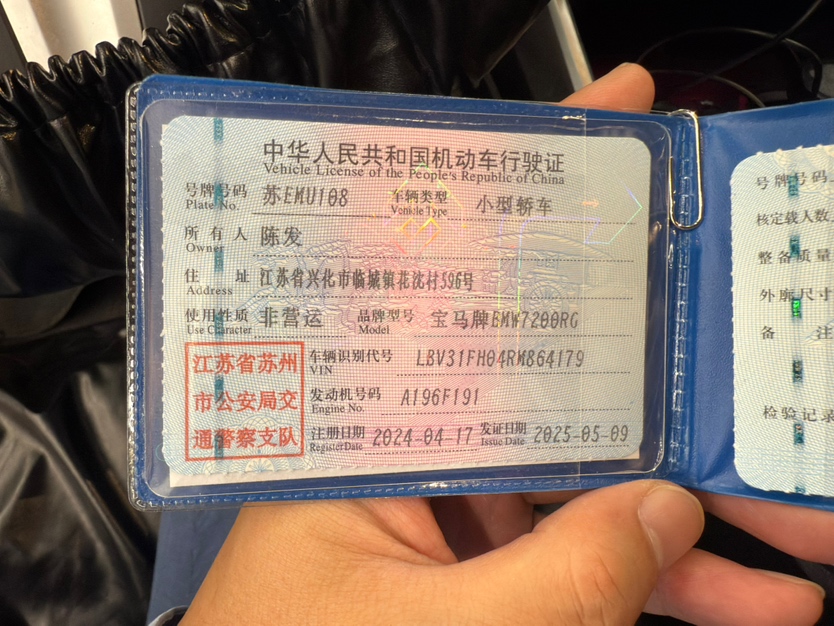 中华人民共和国机动车行驶证
Vehicle License of the People's Republic of China
号牌号码 苏EMU108 车辆类型 小型轿车
Plate No. Vehicle Type
所有人 陈发
Owner
住址 江苏省兴化市临城镇花沈村596号
Address
使用性质 非营运 品牌型号 宝马牌BMW7200RG
Use Character Model
江苏省苏州
市公安局交
通警察支队
车辆识别代号 LBV31FH04RM864179
VIN
发动机号码 A196F191
Engine No.
注册日期 2024-04-17 发证日期 2025-05-09
Register Date Issue Date
号牌号码
核定载人数
整备质量
外廓尺寸
备注
检验记录